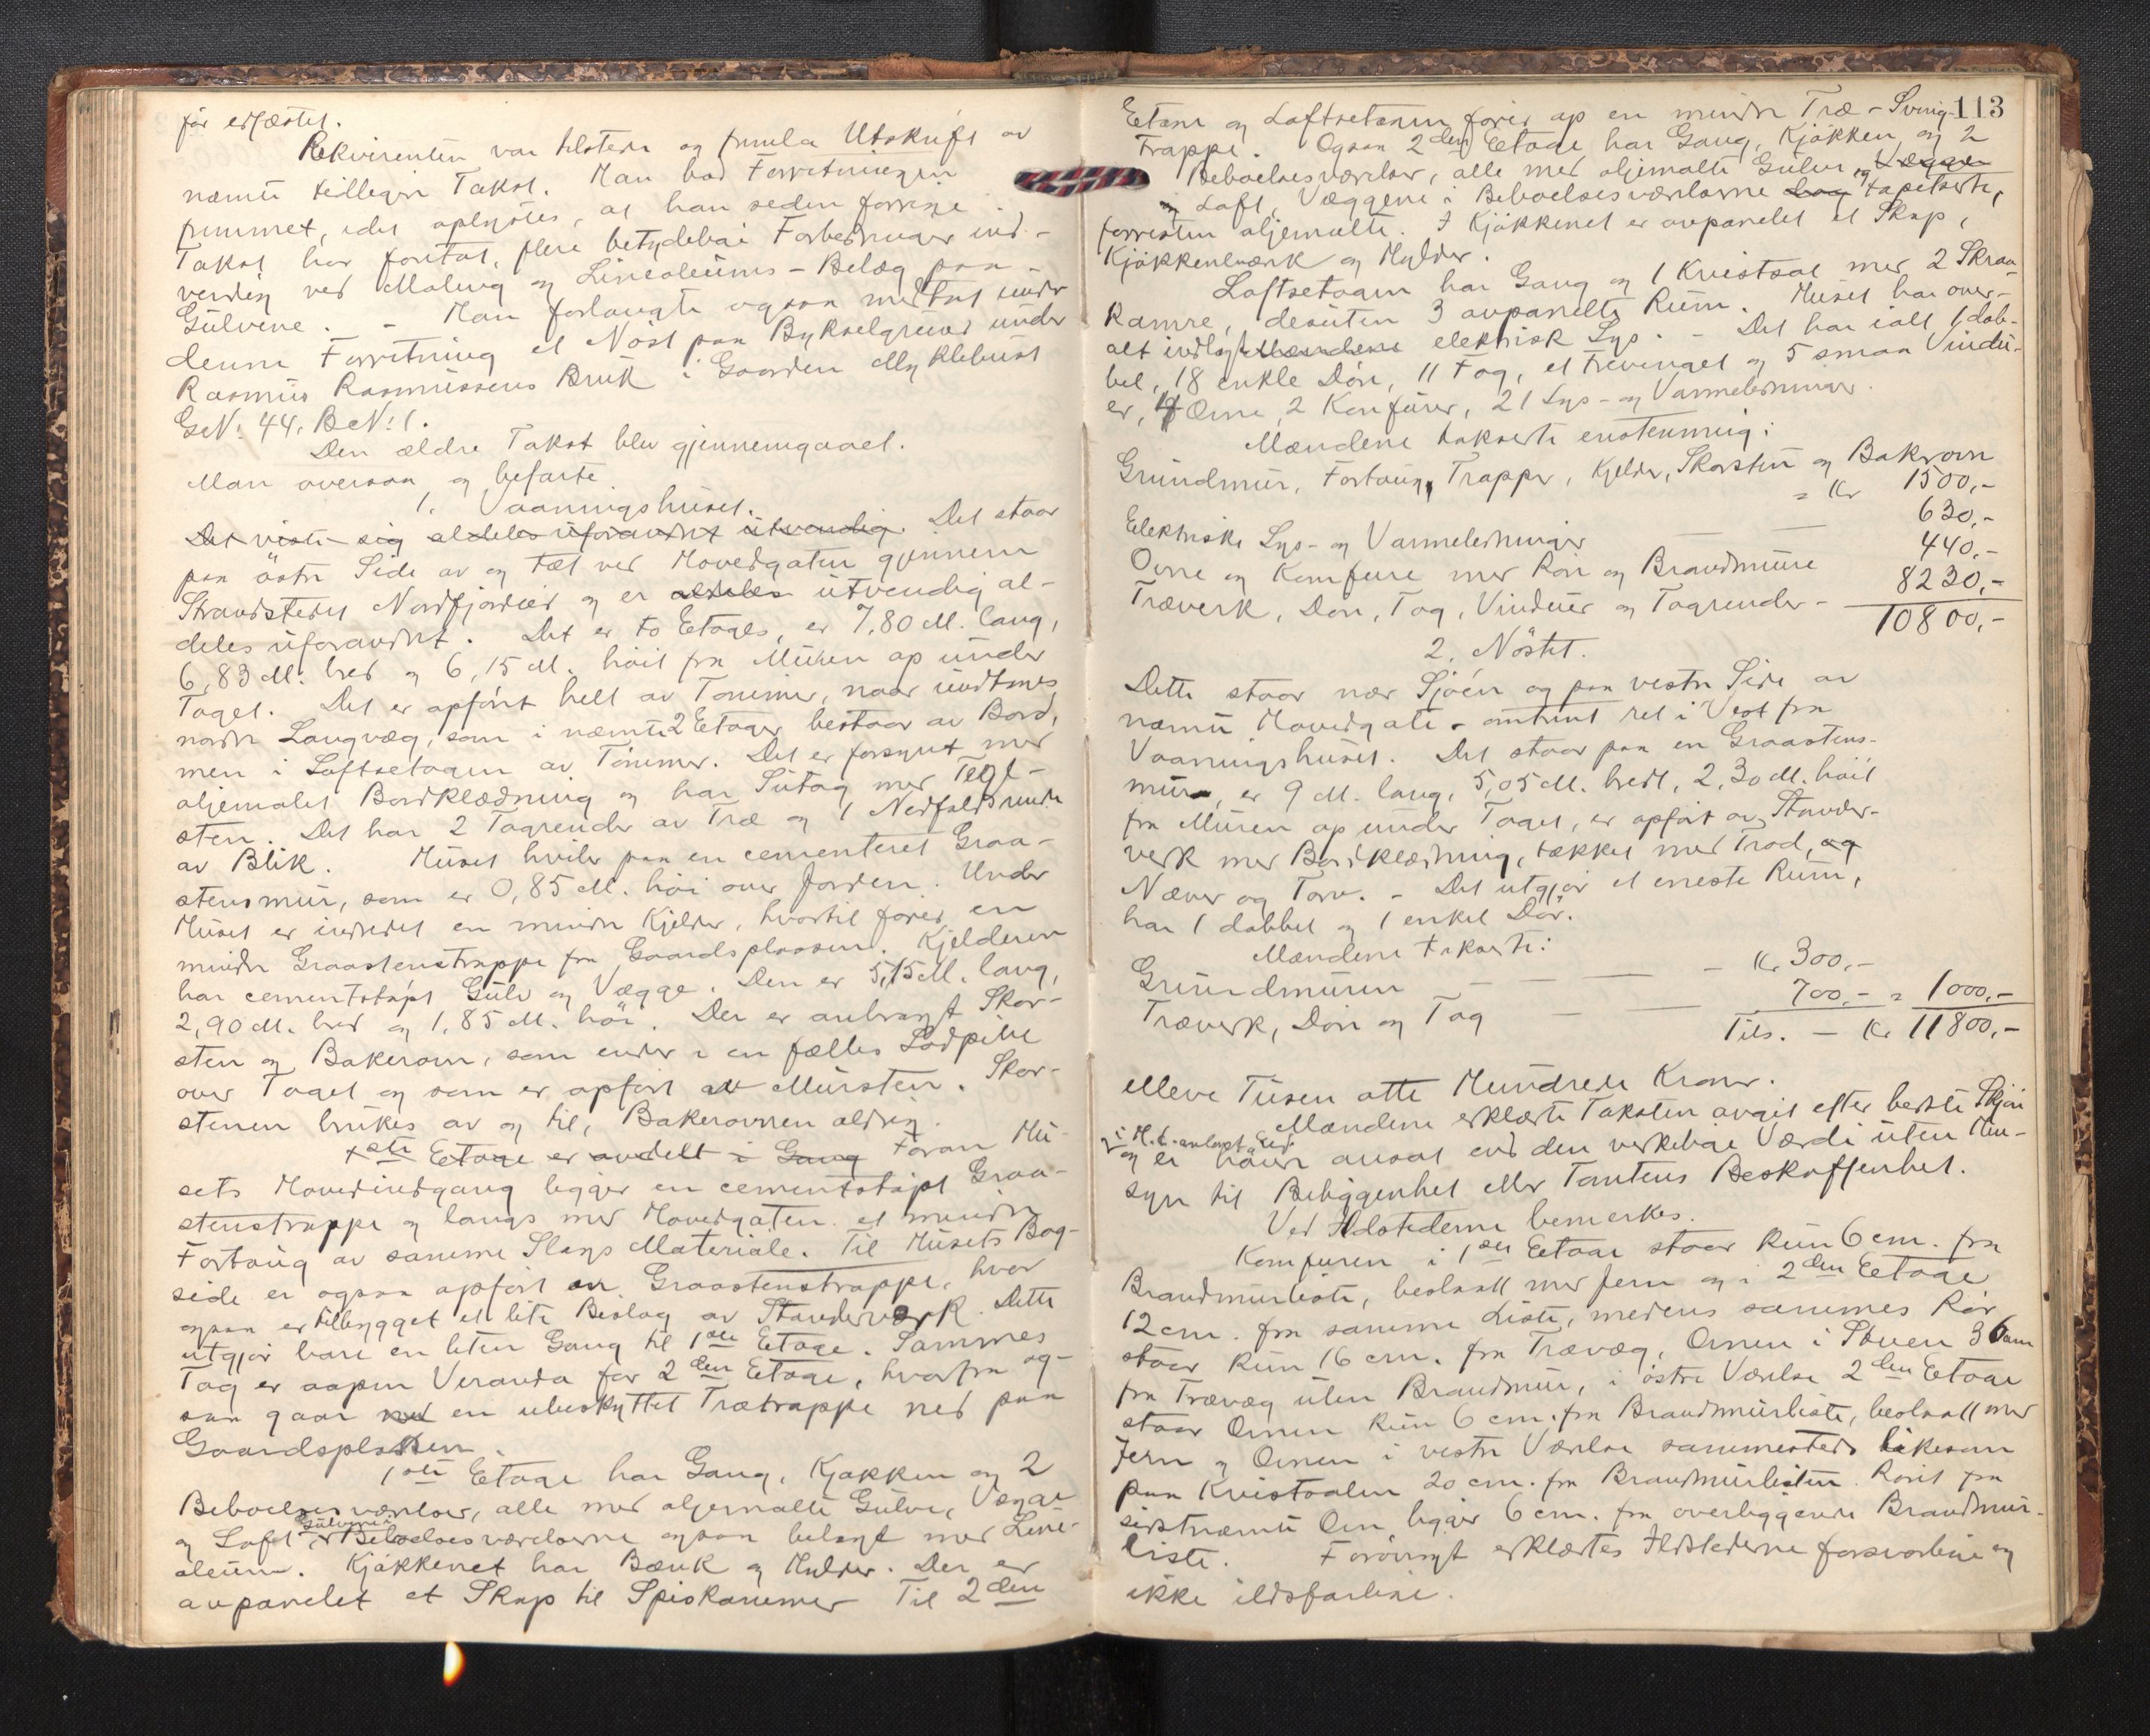 før erfæstet.
Rekvirenten var tilstede og fremla Utskrift av
nævnte tidligere Takst. Man bad Forretningen
fremmet, idet oplystes, at han siden forrige
Takst har foretat flere betydelige Forbedringer ind-
vendig ved Maling og Linoleums-Belæg paa
Gulvene. - Man forlangte ogsaa medtat under
denne Forretning et Nöst paa Bykselgrund under
Rasmus Rasmussens Bruk i Gaarden Myklebust
GNo. 44, BNo. 1.
Den ældre Takst blev gjennemgaaet.
Man oversaa og befarte
1. Vaaningshuset.
Det viste sig aldeles uforandret utvendig. Det staar
paa östre Side av og tæt ved Hovedgaten gjennem
Strandstedet Nordfjordeid og er aldeles utvendig al-
deles uforandret. Det er to Etages, er 7,80 M. lang,
6,83 M. bred og 6,15 M. höit fra Muren op under
Taget. Det er opfört helt av Tømmer, naar undtages
nordre Langvæg, som i nævnte 2 Etager bestaar av Bord,
men i Loftsetagen av Tömmer. Det er forsynet med
oljemalet Bordklædning og har Sutag med Tegl-
sten. Det har 2 Tagrender av Træ og 1 Nedfaldsrende
av Blik. Huset hviler paa en cementeret Graa-
stensmur, som er 0,85 M. höi over Jorden. Under
Huset er indredet en mindre Kjelder, hvortil förer en
mindre Graastenstrappe fra Gaardsplassen. Kjelderen
har cementstöpt Gulv og Vægge. Den er 5,15 M. lang,
2,90 M. bred og 1,85 M. höi. Der er anbragt Skor-
sten og Bakerovn, som ender i en fælles Lodpibe
over Taget og som er opfört av Mursten. Skor-
stenen brukes av og til, Bakerovnen aldrig.
1ste Etage er avdelt i Gang Foran Hu-
sets Hovedindgang ligger en cementstöpt Graa-
stenstrappe og langs med Hovedgaten et mindre
Fortaug av samme Slags Materiale. Til Husets Bag-
side er ogsaa opfört en Graastenstrappe, hvor
ogsaa er tilbygget et lite Bislag av Standerværk. Dette
utgjör bare en liten Gang til 1ste Etage. Sammes
Tag er aapen Veranda for 2den Etage, hvorfra og-
saa gaar ned en ubeskyttet Trætrappe ned paa
Gaardsplassen.
1ste Etage har Gang, Kjøkken og 2
Beboelsesværelser, alle med oljemalte Gulve, Vægge
og Loft, Gulvene i Beboelsesværelserne ogsaa belagt med Lino-
leum. Kjøkkenet har Bænk og Hylder. Der er
avpanelet et Skap til Spiskammer Til 2den
113
Etage og Loftsetagen förer op en mindre Træ-Sving-
Trappe. Ogsaa 2den Etage har Gang, Kjökken og 2
Beboelsesværelser, alle med oljemalte Gulve, og Vægge
og Loft, Væggene i Beboelsesværelserne tapetserte,
forresten oljemalte. I Kjökkenet er avpanelet et Skap,
Kjökkenbænk og Hylder.
Loftsetagen har Gang og 1 Kvistsal med 2 Skraa-
kamre, desuten 3 avpanelte Rum. Huset har over-
alt indlagt elektrisk Lys. - Det har ialt 1 dob-
bel, 18 enkle Döre, 11 Fag, et trevinget og 5 smaa Vindu-
er, 4 Ovne, 2 Komfurer, 21 Lys- og Varmeledninger.
Mændene takserte enstemmig:
Grundmur, Fortaug, Trapper, Kjelder, Skorsten og Bakerovn
= Kr 1500,-
Elektriske Lys- og Varmeledninger — 630,-
Ovne og Komfure med Rör og Brandmure 440,-
Træverk, Döre, Tag, Vinduer og Tagrender - 8230,-
10800,-
2. Nöstet.
Dette staar nær Sjöen og paa vestre Side av
nævnte Hovedgate - omtrent ret i Vest fra
Vaaningshuset. Det staar paa en Graastens-
mur, er 9 M. lang, 5,05 M. bredt, 2,30 M. höit
fra Muren op under Taget, er opfört av Stander-
verk med Bordklædning, tækket med Trod, og
Næver og Torv. - Det utgjör et eneste Rum,
har 1 dobbel og 1 enkel Dör.
Mændene takserte:
Grundmuren — — — - Kr. 300,-
Træverk, Döre og Tag — — 700,- = 1000,-
Tils. — Kr 11800,-
Elleve Tusen otte Hundrede Kroner.
Mændene erklærte Taksten avgit efter bedste Skjön
og i H. t. avlagt Eed
og ei höiere ansat end den virkelige Værdi uten Hen-
syn til Beliggenhet eller Tomtens Beskaffenhet.
Ved Ildstederne bemerkes.
Komfuren i 1ste Etage staar kun 6 cm. fra
Brandmurliste, beslaatt med Jern og i 2den Etage
12 cm. fra samme Liste, medens sammes Rör
staar kun 16 cm. fra Trævæg, Ovnen i Stuen 36 cm
fra Trævæg uten Brandmur, i östre Værelse 2den Etage
staar Ovnen kun 6 cm. fra Brandmurliste, beslaatt med
Jern og Ovnen i vestre Værelse sammesteds likesom
paa Kvistsalen 20 cm. fra Brandmurlisten. Röret fra
sidstnævnte Ovn ligger 6 cm. fra overliggende Brandmur-
liste. Forövrigt erklærtes Ildstederne forsvarlige og
ikke ildsfarlige.